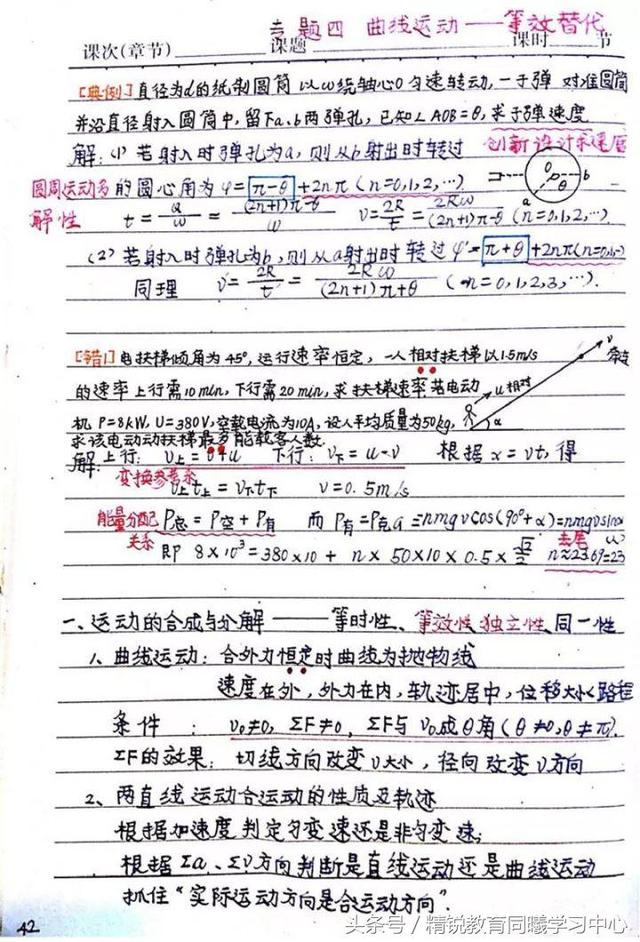 专题四 曲线运动——等效替代
课次(章节) 课题 课时 节
[典例] 直径为d的纸制圆筒以ω绕轴心O匀速转动,一子弹对准圆筒
并沿直径射入圆筒中,留下a、b两弹孔,已知∠AOB=θ,求子弹速度
解:(1) 若射入时弹孔为a,则从b射出时转过 创新设计求速度
圆周运动多 的圆心角为φ=π-θ+2nπ (n=0,1,2,…)
解性 t=α/ω=(2n+1)π-θ/ω v=2R/t=2Rω/(2n+1)π-θ (n=0,1,2,…)
O θ a b
(2) 若射入时弹孔为b,则从a射出时转过φ'=π+θ+2nπ(n=0,1…)
同理 v'=2R/t'=2Rω/(2n+1)π+θ (n=0,1,2,3,…).
[错1] 电扶梯倾角为45°,运行速率恒定,一人相对扶梯以1.5m/s
的速率上行需10min,下行需20min,求扶梯速率.若电动
机P=8kW,U=380V,空载电流为10A,设人平均质量为50kg,
求该电动动扶梯最多能载客人数.
v u相对 α
解:上行:v上=v+u 下行:v下=u-v 根据x=vt,得
变换参考系 v上t上=v下t下 v=0.5m/s
能量分配 P总=P空+P有 而P有=P克G=nmgvcos(90°+α)=nmgvsinα
关系 即 8×10³=380×10+n×50×10×0.5×√2/2 n≈23.69=23 去尾
一、运动的合成与分解——等时性、等效性、独立性、同一性
1、曲线运动:合外力恒定时曲线为抛物线
速度在外,外力在内,轨迹居中,位移大小<路程
条件:v₀≠0,ΣF≠0,ΣF与v₀成θ角(θ≠0,θ≠π).
ΣF的效果:切线方向改变v大小,径向改变v方向
2、两直线运动合运动的性质及轨迹
根据加速度判定匀变速还是非匀变速;
根据Σa、Σv方向判断是直线运动还是曲线运动
抓住“实际运动方向是合运动方向”.
42
头条号/精锐教育同曦学习中心